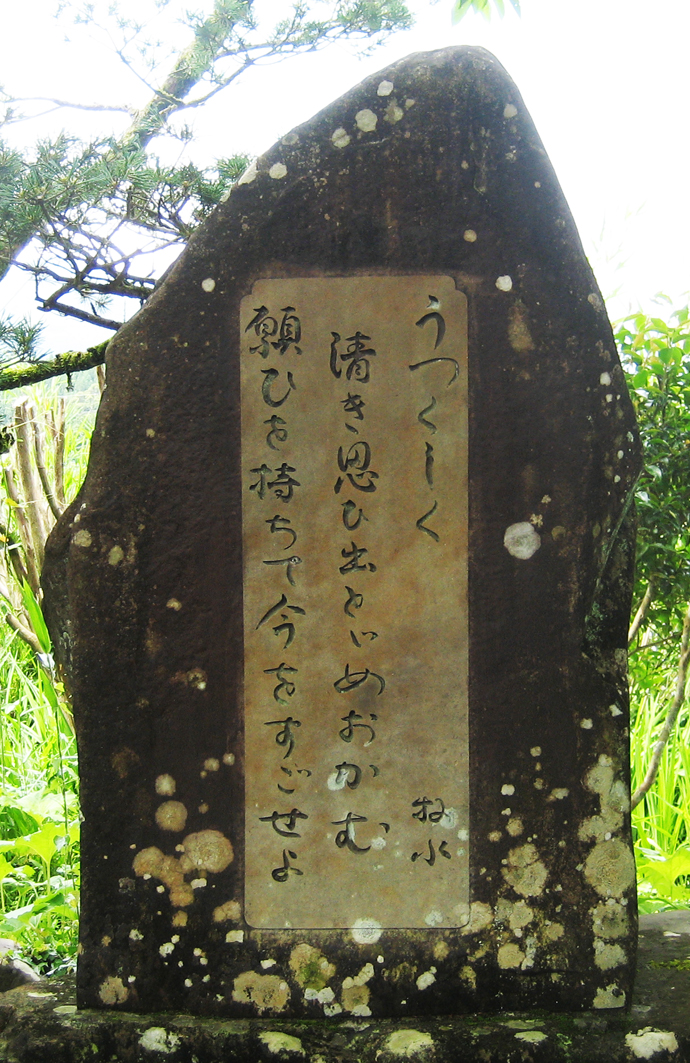 うつくしく　牧水
清き思ひ出とゞめおかむ
願ひを持ちて今をすごせよ